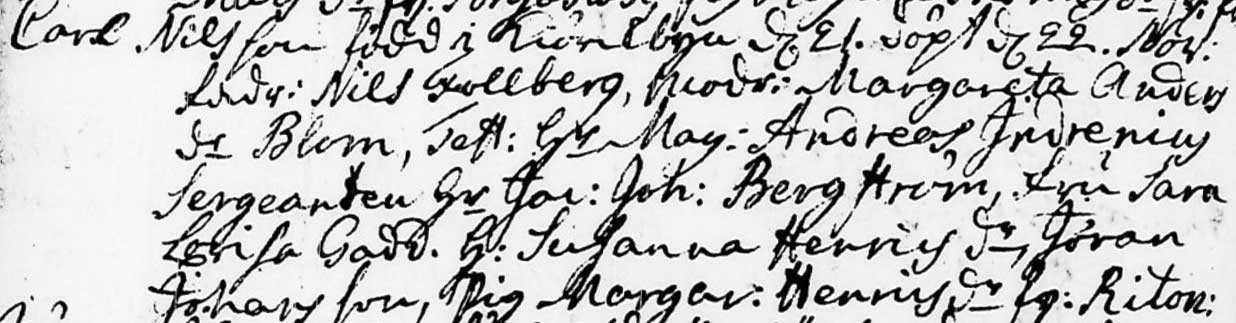 Carl Nilsson född i d. 21. Sept d. 22. Nov:
fadr: Nils Follberg, Modr: Margareta Anders
dr Blom, Test: Hr Mag: Andreas Indrenius
Sergeanten Hr Jac: Joh: Bergström, fru Sara
Lovisa Gadd. H: Susanna Henrics dr, Jöran
Johansson, Pig Margar: Henrics dr Riton: